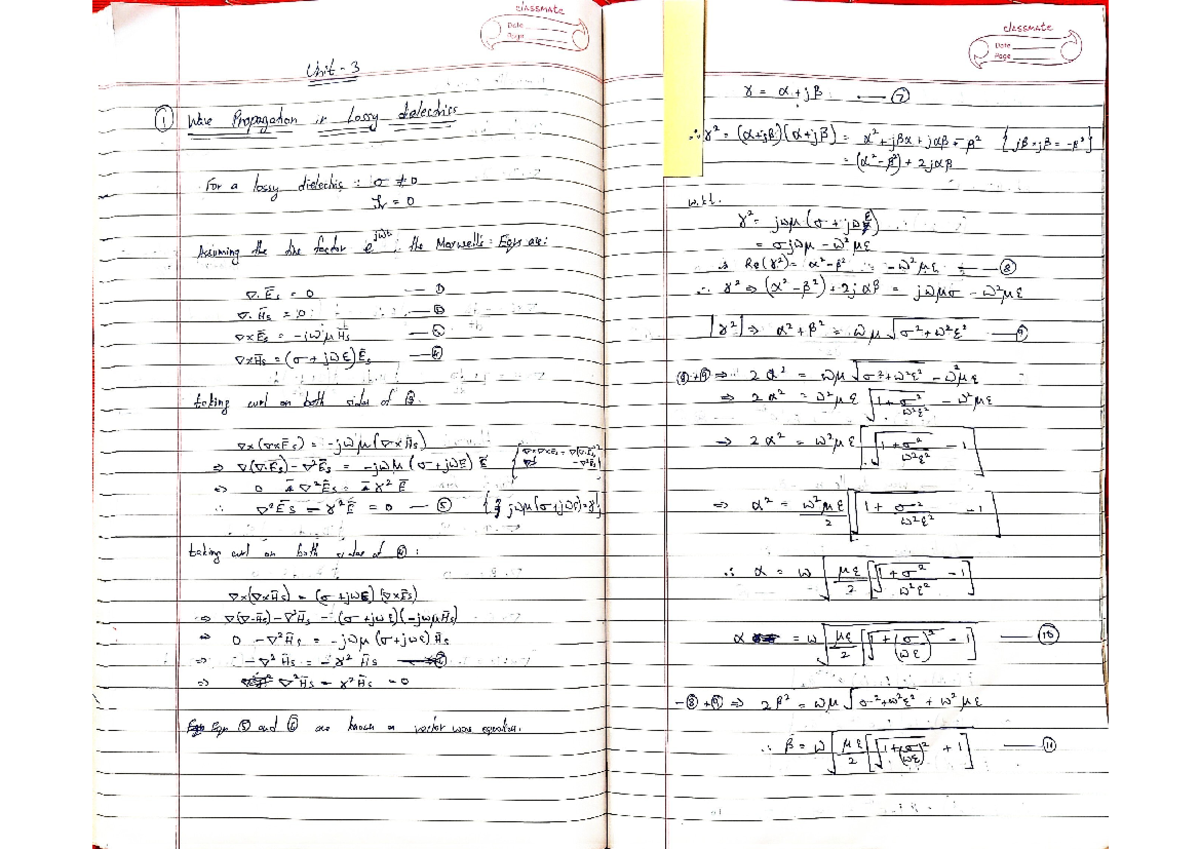 classmate
Date
Page
Unit - 3
① Wave Propagation in Lossy dielectrics
For a lossy dielectric : σ ≠ 0
= 0
Assuming the factor e^jωt, the Maxwells Eqns are:
∇. Ēs = 0 —
∇. H̄s = 0 —
∇×Ēs = -jωμ H̄s —
∇×H̄s = (σ + jωε) Ēs — ④
taking curl on both sides of ③.
∇×(∇×Ēs) = -jωμ (∇×H̄s)
⇒ ∇(∇.Ēs) - ∇²Ēs = -jωμ (σ + jωε) Ē
⇒ 0 ∇²Ēs = γ² Ē
∴ ∇²Ēs - γ²Ē = 0 — ⑤
taking curl on both sides of ④ :
∇×(∇×H̄s) = (σ + jωε) (∇×Ēs)
⇒ ∇(∇.H̄s) - ∇²H̄s = (σ + jωε) (-jωμH̄s)
⇒ 0 - ∇²H̄s = -jωμ (σ + jωε) H̄s
⇒ - ∇² H̄s = - γ² H̄s
⇒ ∇²H̄s - γ²H̄s = 0
Eqn ⑤ and ⑥ are known as vector wave equation.
classmate
Date
Page
γ = α + jβ — ⑦
∴ γ² = (α+jβ)(α+jβ) = α² + jβα + jαβ - β² [jβ×jβ = -β²]
= (α² - β²) + 2jαβ
w.k.t.
γ² = jωμ (σ + jωε)
= σjωμ - ω²με
∴ Re(γ²) = α² - β² = -ω²με — ⑧
∴ γ² ⇒ (α² - β²) + 2jαβ = jωμσ - ω²με
|γ²| ⇒ α² + β² = ωμ √(σ² + ω²ε²) — ⑨
⑧+⑨ ⇒ 2α² = ωμ √(σ² + ω²ε²) - ω²με
⇒ 2α² = ω²με √(1 + σ²/ω²ε²) - ω²με
⇒ 2α² = ω²με [√(1 + σ²/ω²ε²) - 1]
⇒ α² = ω²με/2 [√(1 + σ²/ω²ε²) - 1]
∴ α = ω √(με/2 [√(1 + σ²/ω²ε²) - 1])
α = ω √(με/2 [√(1 + (σ/ωε)²) - 1]) — ⑩
-⑧+⑨ ⇒ 2β² = ωμ √(σ² + ω²ε²) + ω²με
∴ β = ω √(με/2 [√(1 + (σ/ωε)²) + 1]) — ⑪